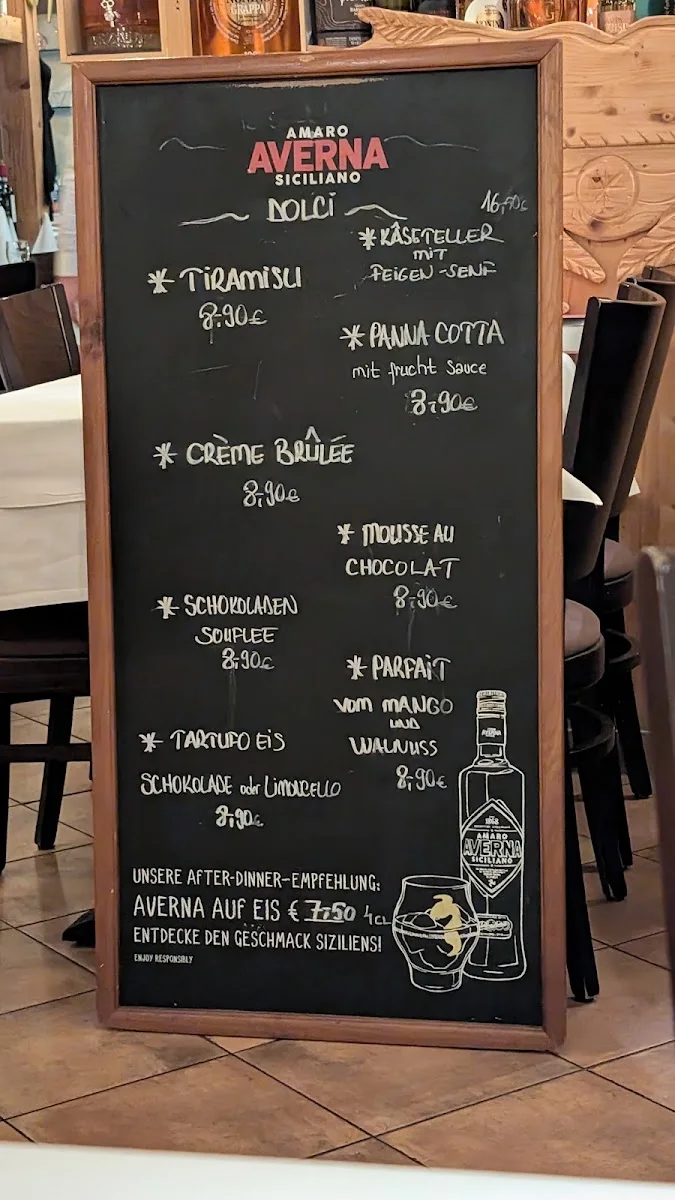 GRAPPA
AMARO
AVERNA
SICILIANO
DOLCI
16,50€
* KÄSETELLER
mit
FEIGEN-SENF
* TIRAMISU
8.90€
* PANNA COTTA
mit frucht Sauce
8,90€
* CRÈME BRÛLÉE
8,90€
* MOUSSE AU
CHOCOLAT
8,90€
* SCHOKOLADEN
SOUFLEE
8,90€
* PARFAIT
vom MANGO
UND
WALNUSS
8,90€
* TARTUFO EIS
SCHOKOLADE oder LIMONCELLO
8,90€
UNSERE AFTER-DINNER-EMPFEHLUNG:
AVERNA AUF EIS € 7,50 4CL
ENTDECKE DEN GESCHMACK SIZILIENS!
ENJOY RESPONSIBLY
AVERNA
1868
AMARO
AVERNA
SICILIANO